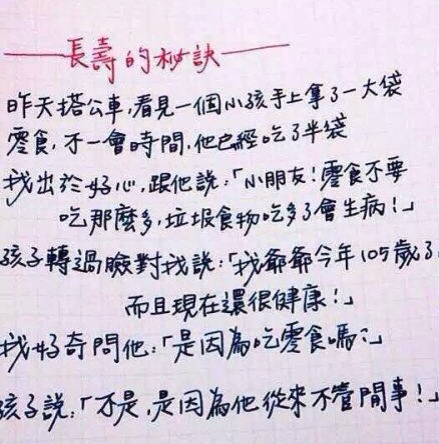 長壽的秘訣
昨天搭公車,看見一個小孩手上拿了一大袋
零食,不一會時間,他已經吃了半袋
我出於好心,跟他說:「小朋友!零食不要
吃那麼多,垃圾食物吃多了會生病!」
孩子轉過臉對我說:「我爺爺今年105歲了,
而且現在還很健康!」
我好奇問他:「是因為吃零食嗎?」
孩子說:「不是,是因為他從來不管閒事!」